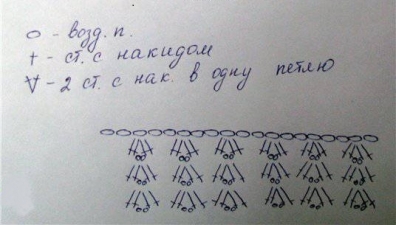 о - возд. п.
† - ст. с накидом
V - 2 ст. с нак. в одну петлю